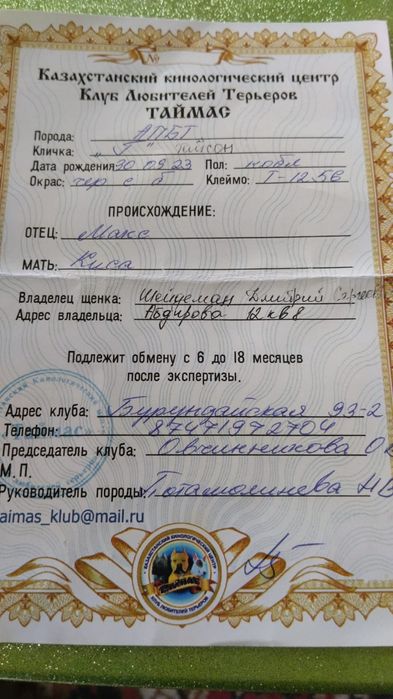 №
Казахстанский кинологический центр
Клуб Любителей Терьеров
ТАЙМАС
Порода: АПБТ
Кличка: „Т" тайсон
Дата рождения 30 09 23 Пол: кобл
Окрас: чер с б Клеймо: Т-125в
ПРОИСХОЖДЕНИЕ:
ОТЕЦ: Макс
МАТЬ: Киса
Владелец щенка: Дмитрий
Адрес владельца: Абдирова 12 кв 8
Подлежит обмену с 6 до 18 месяцев
после экспертизы.
Адрес клуба: Бурундайская 93-2
Телефон: 87471972704
Председатель клуба: Овчинникова О
М. П.
Руководитель породы:
aimas_klub@mail.ru
КАЗАХСТАНСКИЙ КИНОЛОГИЧЕСКИЙ ЦЕНТР
ТАЙМАС
КЛУБ ЛЮБИТЕЛЕЙ ТЕРЬЕРОВ